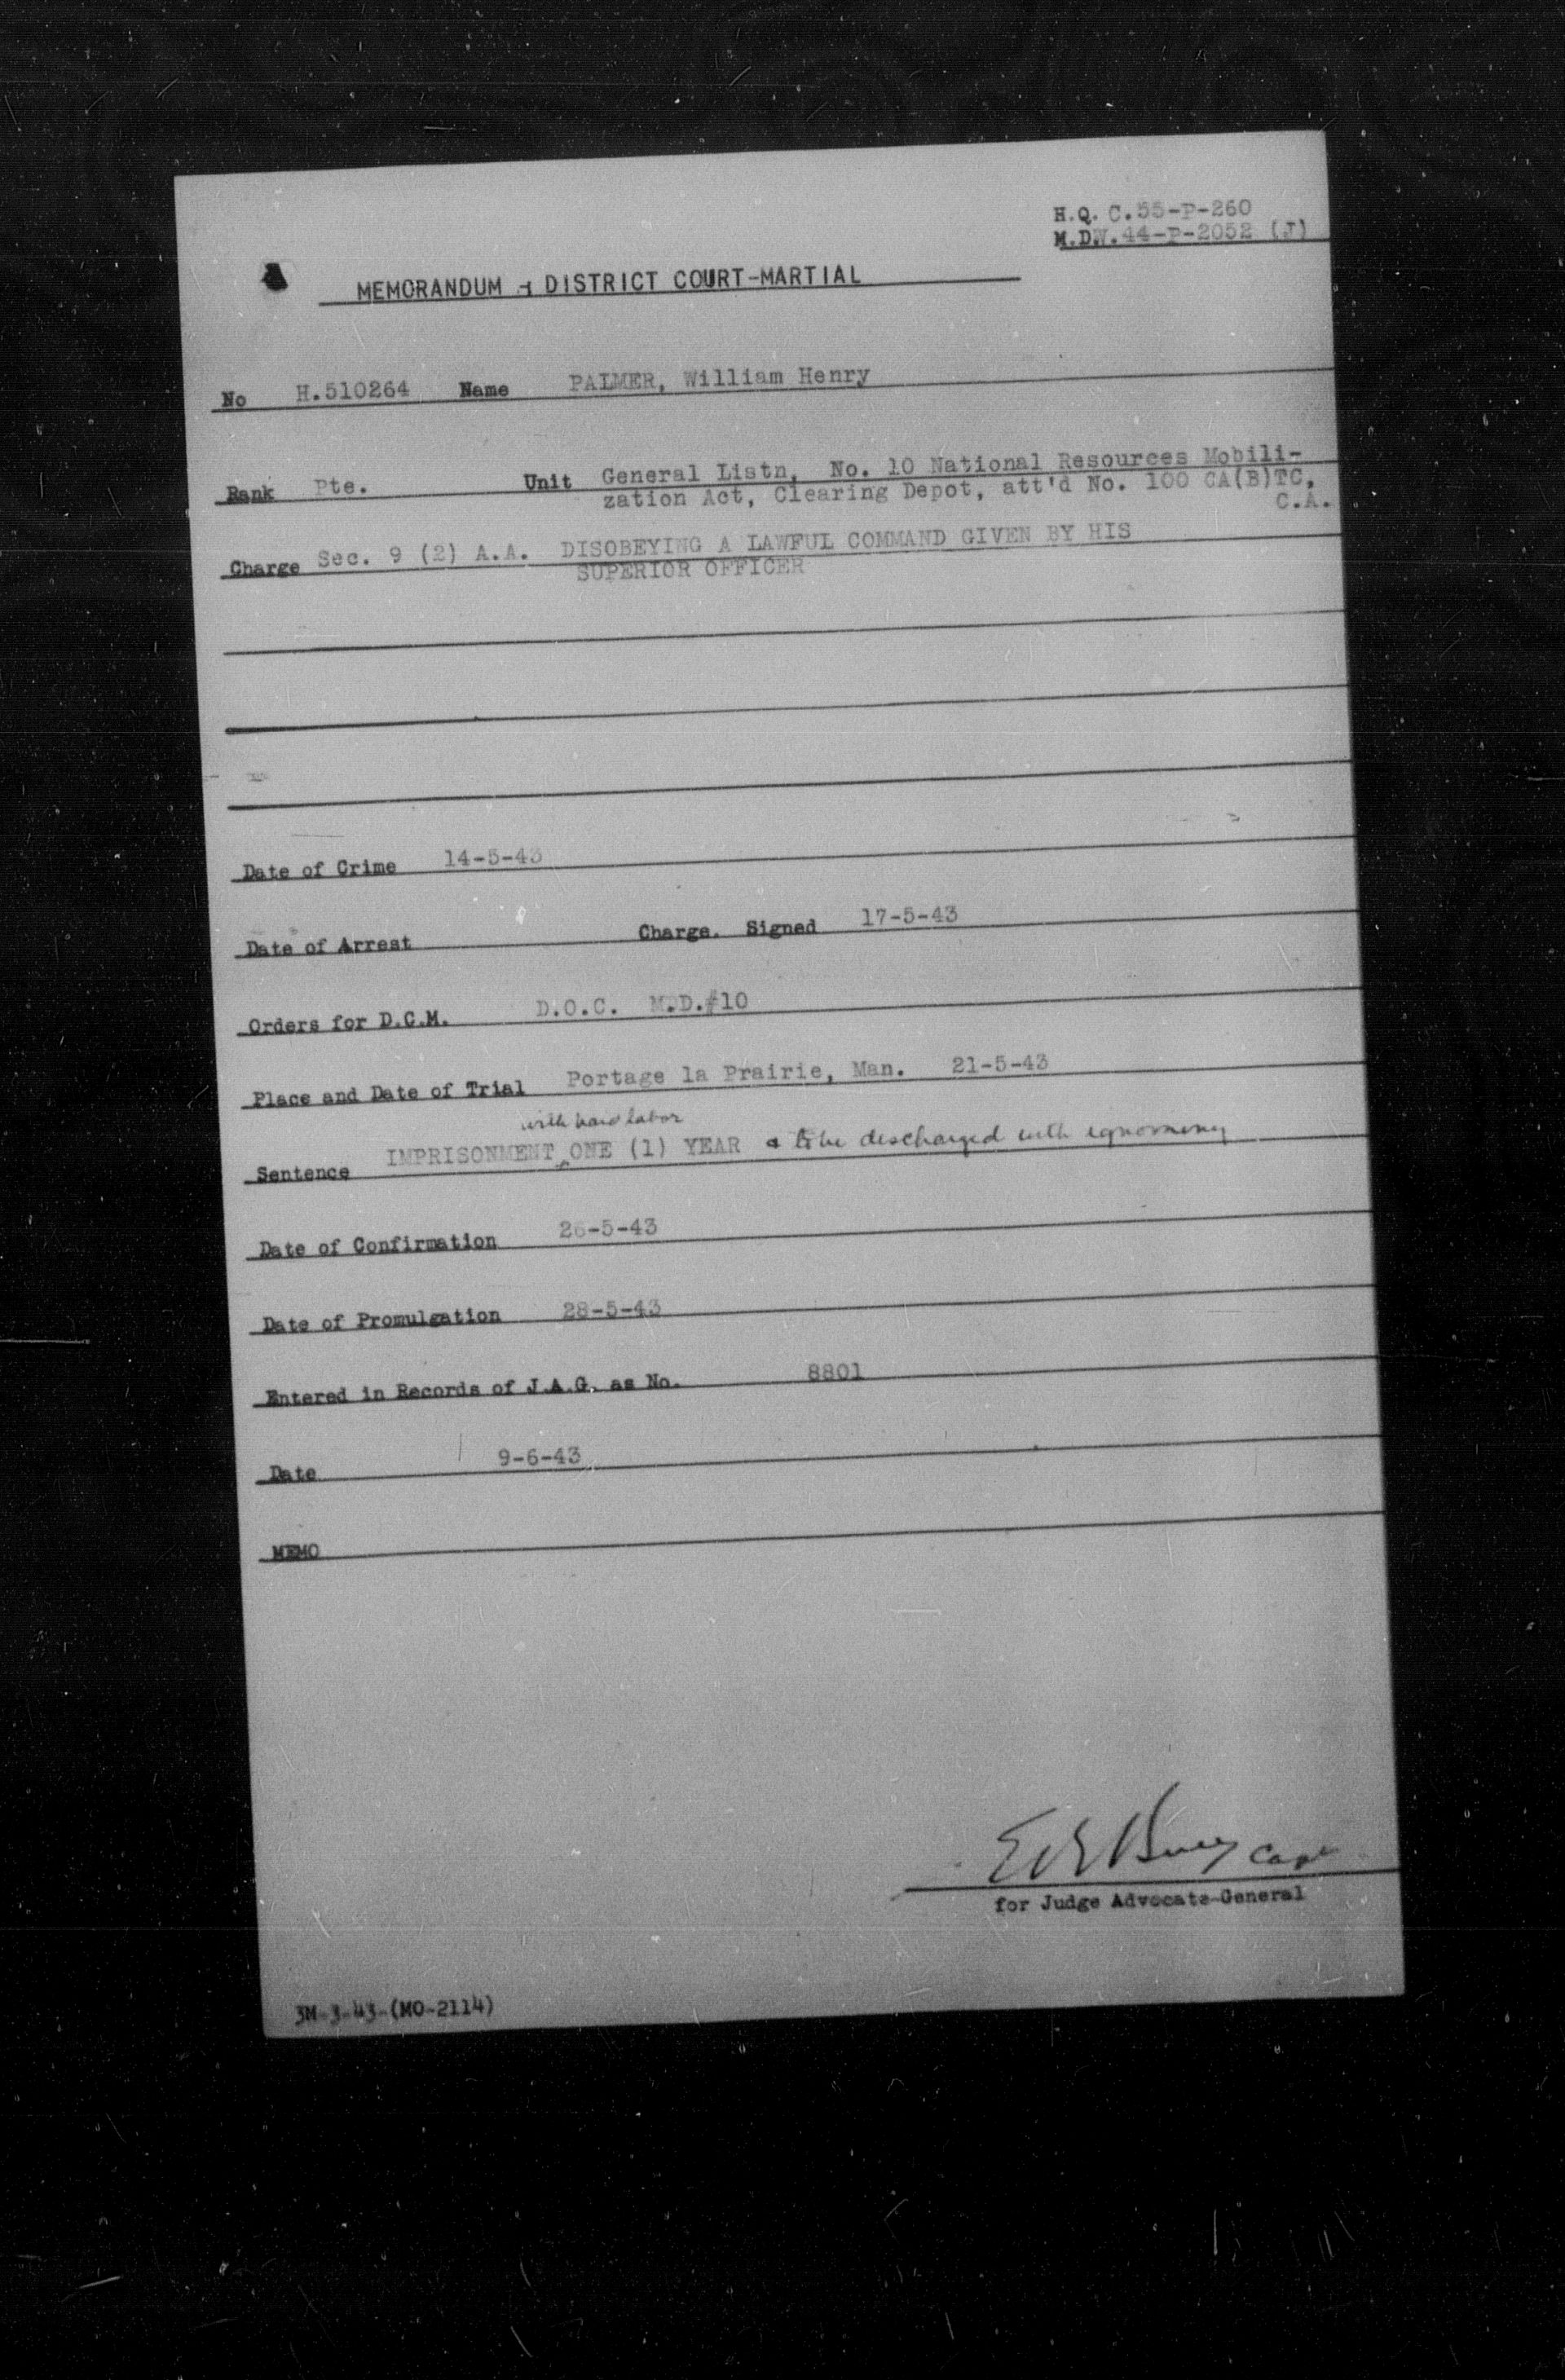 H.Q. C.55-P-260
M.D.W.44-P-2052 (J)
MEMORANDUM - DISTRICT COURT-MARTIAL
No H.510264 Name PALMER, William Henry
Rank Pte. Unit General Listn, No. 10 National Resources Mobili-
zation Act, Clearing Depot, att'd No. 100 CA(B)TC,
C.A.
Charge Sec. 9 (2) A.A. DISOBEYING A LAWFUL COMMAND GIVEN BY HIS
SUPERIOR OFFICER
Date of Crime 14-5-43
Date of Arrest Charge. Signed 17-5-43
Orders for D.C.M. D.O.C. M.D.#10
Place and Date of Trial Portage la Prairie, Man. 21-5-43
with hard labor
Sentence IMPRISONMENT ONE (1) YEAR & to be discharged with ignominy
Date of Confirmation 26-5-43
Date of Promulgation 28-5-43
Entered in Records of J.A.G. as No. 8801
Date 9-6-43
MEMO
Capt
for Judge Advocate-General
3M-3-43-(MO-2114)